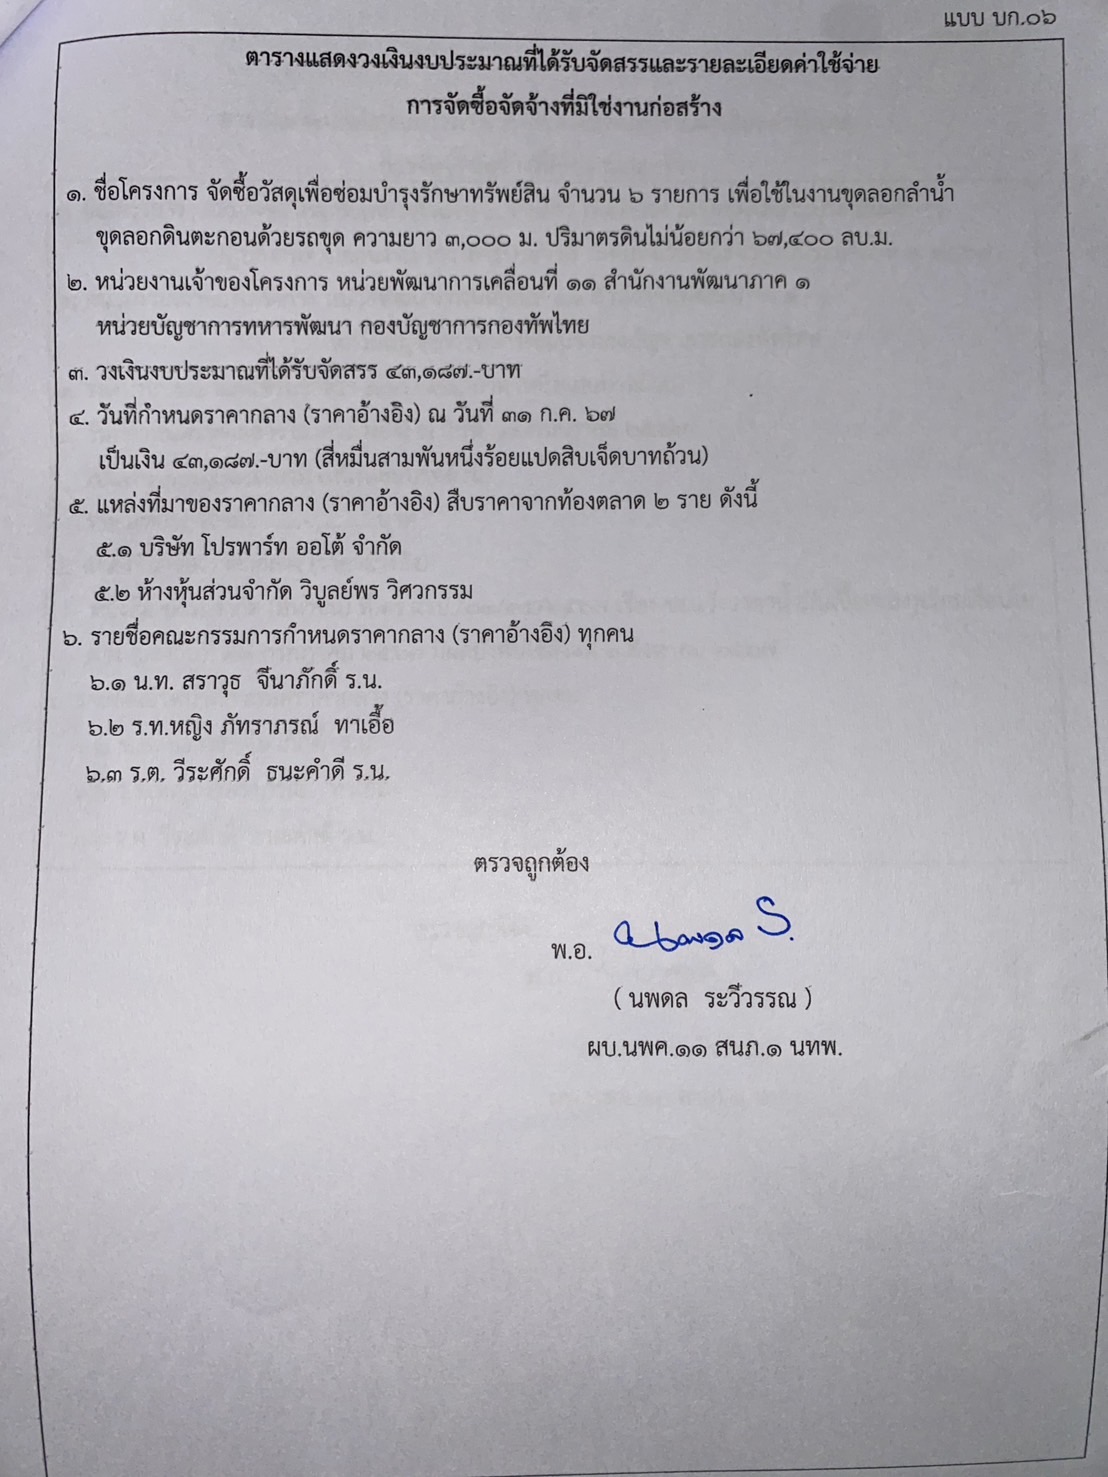 แบบ บก.๐๖
ตารางแสดงวงเงินงบประมาณที่ได้รับจัดสรรและรายละเอียดค่าใช้จ่าย
การจัดซื้อจัดจ้างที่มิใช่งานก่อสร้าง
๑. ชื่อโครงการ จัดซื้อวัสดุเพื่อซ่อมบำรุงรักษาทรัพย์สิน จำนวน ๖ รายการ เพื่อใช้ในงานขุดลอกลำน้ำ
ขุดลอกดินตะกอนด้วยรถขุด ความยาว ๓,๐๐๐ ม. ปริมาตรดินไม่น้อยกว่า ๖๗,๔๐๐ ลบ.ม.
๒. หน่วยงานเจ้าของโครงการ หน่วยพัฒนาการเคลื่อนที่ ๑๑ สำนักงานพัฒนาภาค ๑
หน่วยบัญชาการทหารพัฒนา กองบัญชาการกองทัพไทย
๓. วงเงินงบประมาณที่ได้รับจัดสรร ๔๓,๑๘๗.-บาท
๔. วันที่กำหนดราคากลาง (ราคาอ้างอิง) ณ วันที่ ๓๑ ก.ค. ๖๗
เป็นเงิน ๔๓,๑๘๗.-บาท (สี่หมื่นสามพันหนึ่งร้อยแปดสิบเจ็ดบาทถ้วน)
๕. แหล่งที่มาของราคากลาง (ราคาอ้างอิง) สืบราคาจากท้องตลาด ๒ ราย ดังนี้
๕.๑ บริษัท โปรพาร์ท ออโต้ จำกัด
๕.๒ ห้างหุ้นส่วนจำกัด วิบูลย์พร วิศวกรรม
๖. รายชื่อคณะกรรมการกำหนดราคากลาง (ราคาอ้างอิง) ทุกคน
๖.๑ น.ท. สราวุธ จีนาภักดิ์ ร.น.
๖.๒ ร.ท.หญิง ภัทราภรณ์ ทาเอื้อ
๖.๓ ร.ต. วีระศักดิ์ ธนะคำดี ร.น.
ตรวจถูกต้อง
พ.อ.
( นพดล ระวีวรรณ )
ผบ.นพค.๑๑ สนภ.๑ นทพ.